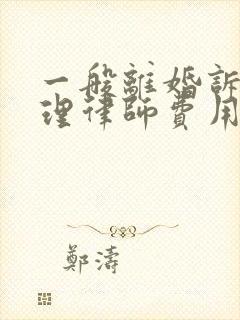 一般離婚訴
理律師費用
鄭濤